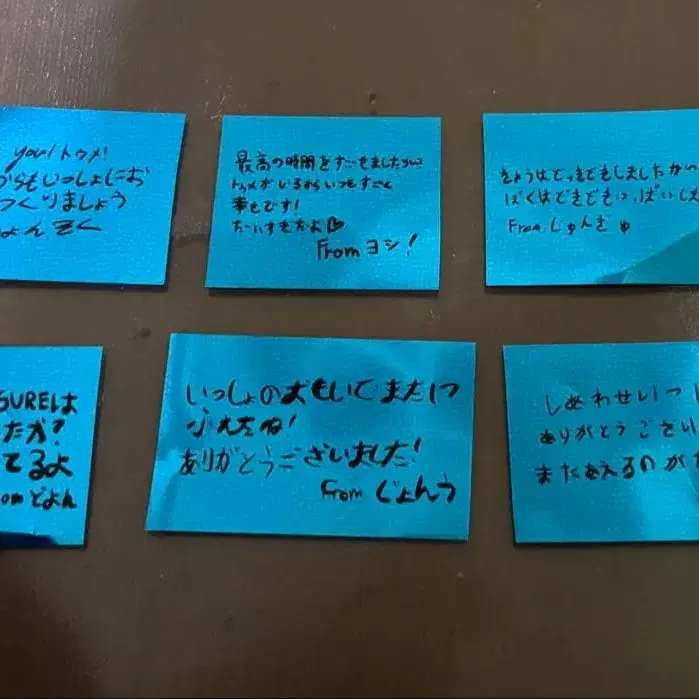 you! トゥメ!
からもいっしょにお
つくりましょう
よんそく
最高の時間をすごせましたかい?
トゥメがいるからいつもすごく
幸せです!
だいすきだよ♡
From ヨシ!
きょうはどっきどきしましたか
ぼくはどきどきいっぱいした
From じゅんぎゅ
SUREは
たか?
てるよ
om どよん
いっしょのおもいでまた1つ
ふえたね!
ありがとうございました!
From じょんう
しあわせいっ
ありがとうござい
またあえるのが